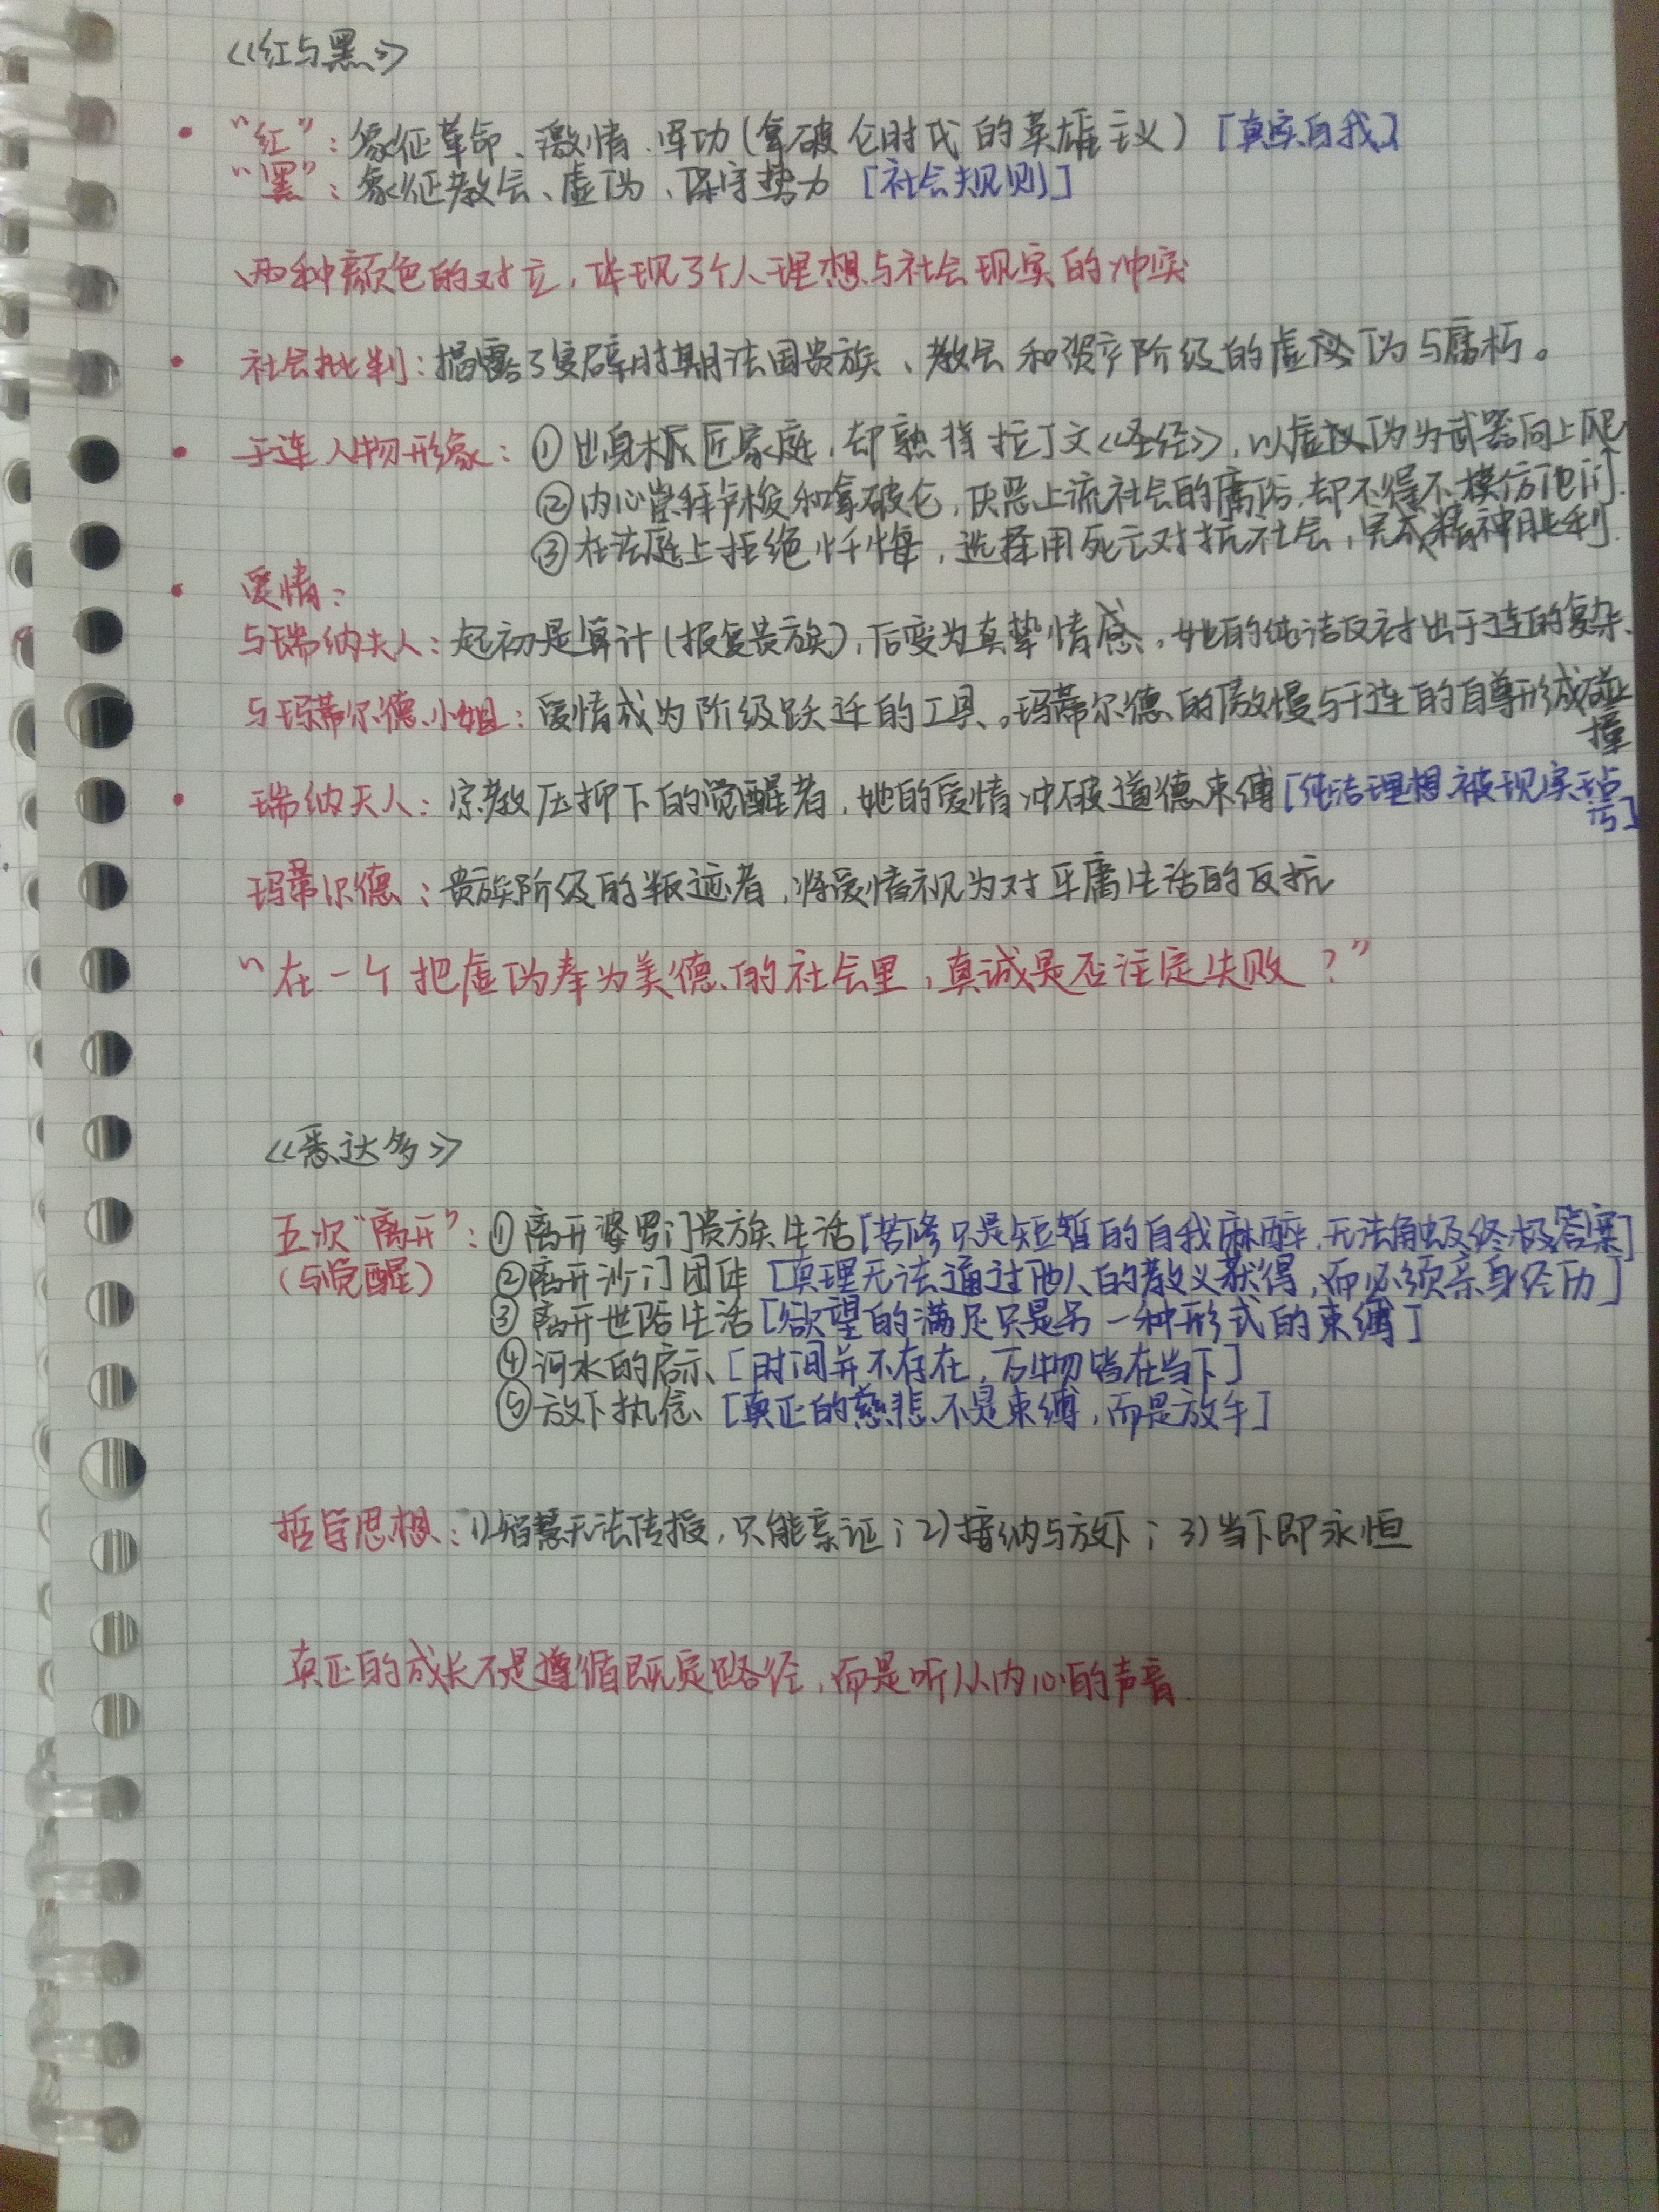 《红与黑》
"红"：象征革命、激情、军功(拿破仑时代的英雄主义)[真实自我]
"黑"：象征教会、虚伪、保守势力 [社会规则]
两种颜色的对立，体现了个人理想与社会现实的冲突
社会批判：揭露了复辟时期法国贵族、教会和资产阶级的虚伪与腐朽。
于连人物形象：①出身木匠家庭，却熟背拉丁文《圣经》，以虚伪为武器向上爬
②内心崇拜卢梭和拿破仑，厌恶上流社会的庸俗，却不得不模仿他们.
③在法庭上拒绝忏悔，选择用死亡对抗社会，完成精神胜利.
爱情：
与瑞纳夫人：起初是算计(报复贵族)，后变为真挚情感，她的纯洁反衬出于连的复杂.
与玛蒂尔德小姐：爱情成为阶级跃迁的工具。玛蒂尔德的傲慢与于连的自尊形成碰
撞
瑞纳夫人：宗教压抑下的觉醒者，她的爱情冲破道德束缚[纯洁理想被现实玷
污]
玛蒂尔德：贵族阶级的叛逆者，将爱情视为对平庸生活的反抗
"在一个把虚伪奉为美德的社会里，真诚是否注定失败？"
《悉达多》
五次"离开"：①离开婆罗门贵族生活[苦修只是短暂的自我麻醉，无法触及终极答案]
(与觉醒) ②离开沙门团体 [真理无法通过他人的教义获得，而必须亲身经历]
③离开世俗生活[欲望的满足只是另一种形式的束缚]
④河水的启示 [时间并不存在，万物皆在当下]
⑤放下执念 [真正的慈悲不是束缚，而是放手]
哲学思想：1)智慧无法传授，只能亲证；2)接纳与放下；3)当下即永恒
真正的成长不是遵循既定路径，而是听从内心的声音.